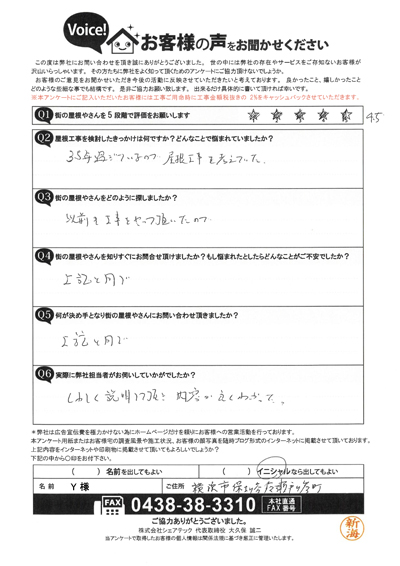 Voice!
お客様の声をお聞かせください
この度は弊社にお問い合わせを頂き誠にありがとうございました。世の中には弊社の存在やサービスをご存知ないお客様が
沢山いらっしゃいます。その方たちに弊社をよく知って頂くためのアンケートにご協力頂けないでしょうか。
お客様のご意見をお聞かせいただき今後の活動に反映させていただきたいと考えております。良かったこと、嬉しかったこと
どのような些細な事でも結構です。是非ご協力お願い致します。出来るだけ具体的に書いて頂ければ幸いです。
※本アンケートにご記入いただいたお客様には工事ご用命時に工事金額税抜きの2%をキャッシュバックさせていただきます。
Q1 街の屋根やさんを5段階で評価をお願いします ☆ ☆ ☆ ☆ ☆ 4.5
Q2 屋根工事を検討したきっかけは何ですか?どんなことで悩まれていましたか?
35年過ぎているので 屋根工事を考えていた
Q3 街の屋根やさんをどのように探しましたか?
以前も工事をやって頂いたので
Q4 街の屋根やさんを知りすぐにお問合せ頂けましたか?もし悩まれたとしたらどんなことがご不安でしたか?
上記と同じ
Q5 何が決め手となり街の屋根やさんにお問い合わせ頂きましたか?
上記と同じ
Q6 実際に弊社担当者がお伺いしていかがでしたか?
くわしく説明して頂き 内容が良くわかった。
＊弊社は広告宣伝費を極力かけない為にホームページだけを頼りにお客様への営業活動を行っております。
本アンケート用紙またはお客様宅の調査風景や施工状況、お客様の顔写真を随時ブログ形式のインターネットに掲載させて頂いております。
上記内容をインターネットや印刷物に掲載させて頂いてもよろしいでしょうか?
下記の中から〇印をお付下さい。
( ) 名前を出してもよい ( ) イニシャルなら出してもよい
名前 Y様 ご住所 横浜市保土ケ谷区
FAX 0438-38-3310 本社直通 FAX番号
ご協力ありがとうございました。
株式会社シェアテック 代表取締役 大久保 誠二
当アンケートで取得したお客様の個人情報は関係法規に基づき厳正に管理いたします。
新海